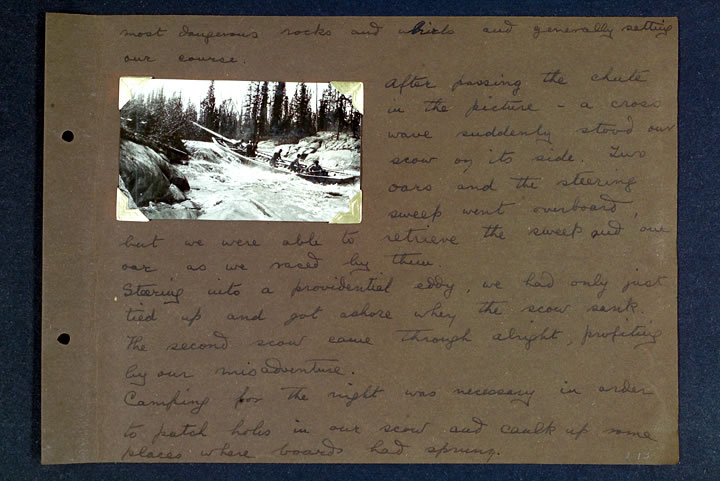 most dangerous rocks and whirls and generally setting
our course.
After passing the chute
in the picture - a cross
wave suddenly stood our
scow on its side. Two
oars and the steering
sweep went overboard,
but we were able to retrieve the sweep and one
oar as we raced by them.
Steering into a providential eddy, we had only just
tied up and got ashore when the scow sank.
The second scow came through alright, profiting
by our misadventure.
Camping for the night was necessary in order
to patch holes in our scow and caulk up some
places where boards had sprung.